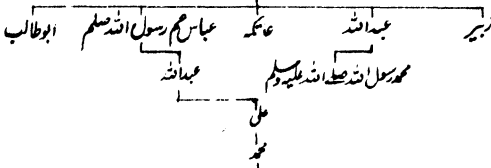 زبیر عبداللہ عاتکہ عباس عم رسول اللہ صلعم ابوطالب
محمد رسول اللہ صلے اللہ علیہ وسلم عبداللہ
علی
محمد